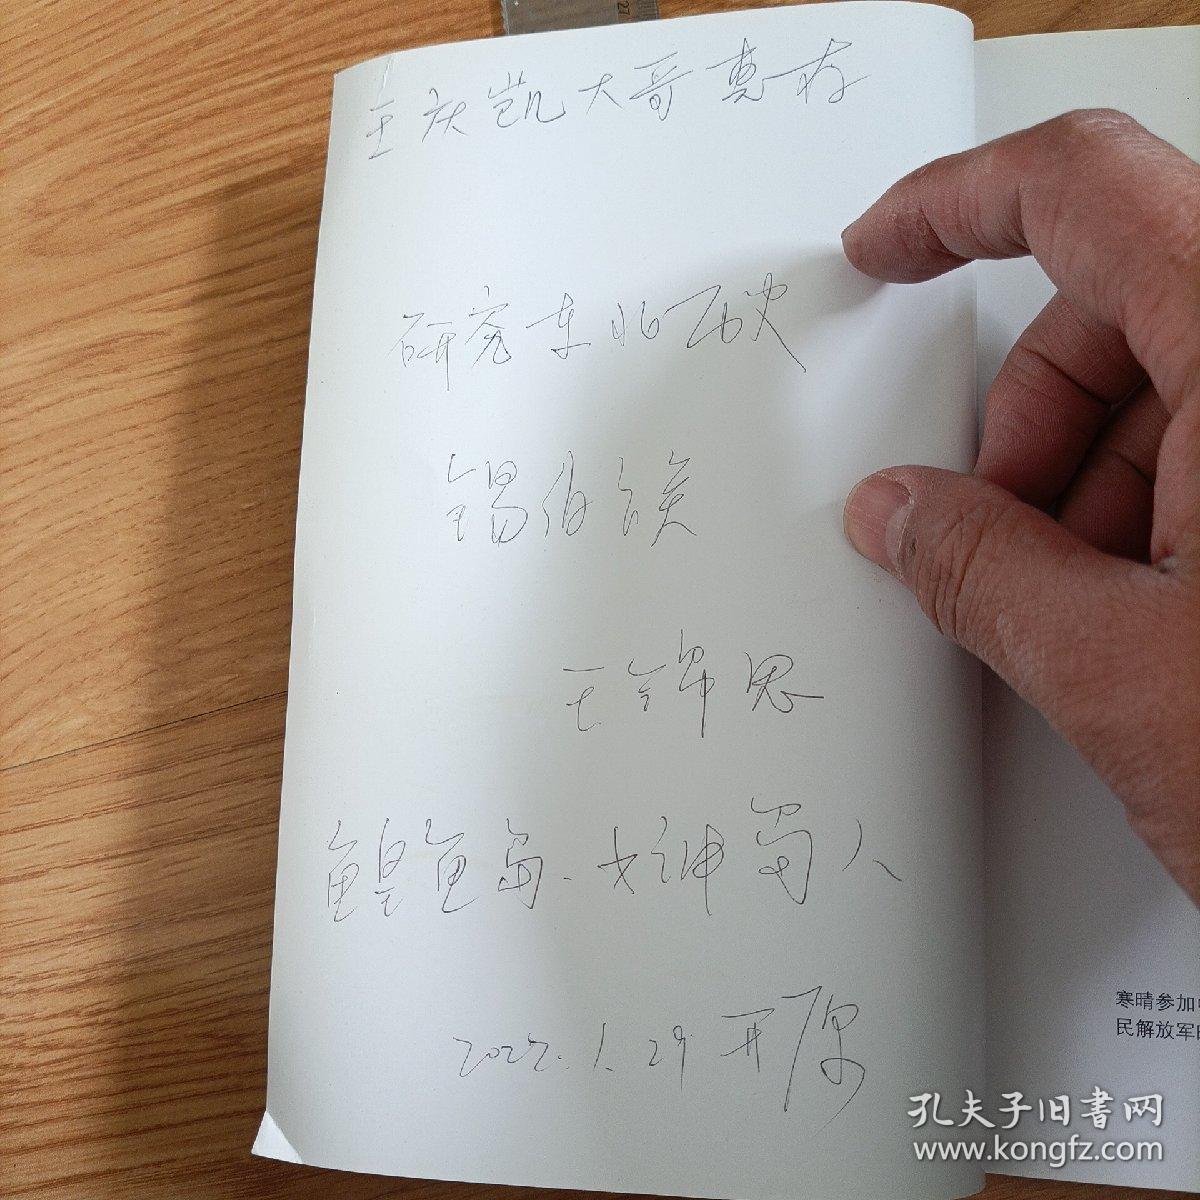 王庆凯大哥惠存
研究东北历史
锡伯族
王锦思
鳇鱼岛、大神蜀人
2022.1.29 开原
寒晴参加
民解放军
孔夫子旧书网
www.kongfz.com
27